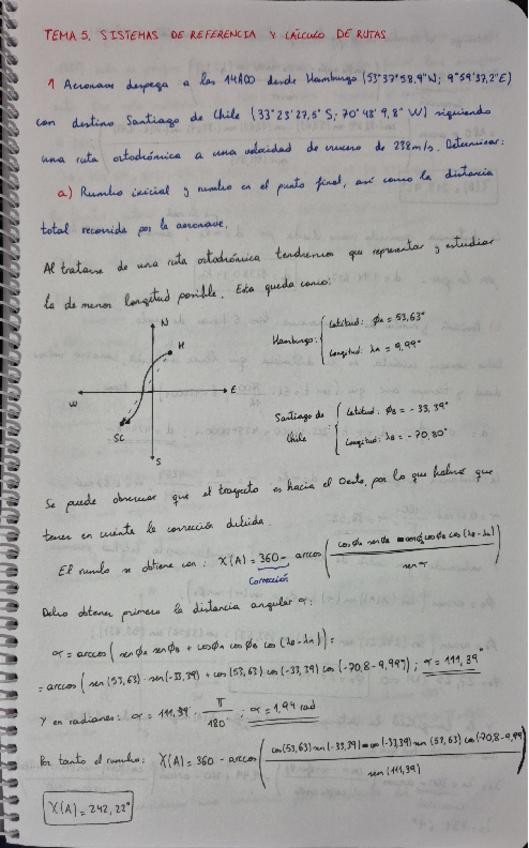 TEMA 5. SISTEMAS DE REFERENCIA Y CÁLCULO DE RUTAS
1 Aeronave despega a las 14h00 desde Hamburgo (53°37'58,9"N; 9°59'37,2"E)
con destino Santiago de Chile (33°23'27,5"S; 70°48'9,8"W) siguiendo
una ruta ortodrómica a una velocidad de crucero de 238m/s. Determinar:
a) Rumbo inicial y rumbo en el punto final, así como la distancia
total recorrida por la aeronave.
Al tratarse de una ruta ortodrómica tendremos que representar y estudiar
la de menor longitud posible. Esta queda como:
N
H
W
E
SC
S
Hamburgo: { Latitud: φA = 53,63°
Longitud: λA = 9,99°
Santiago de Chile { Latitud: φB = -33,39°
Longitud: λB = -70,80°
Se puede observar que el trayecto es hacia el Oeste, por lo que habrá que
tener en cuenta la corrección debida.
El rumbo se obtiene con: X(A) = 360 - arccos( (cosφA senφB - senφA cosφB cos(λB-λA)) / sen σ )
Corrección
Debo obtener primero la distancia angular σ:
σ = arccos( senφA senφB + cosφA cosφB cos(λB-λA) ) =
= arccos( sen(53,63)·sen(-33,39) + cos(53,63) cos(-33,39) cos(-70,8-9,99) ) ; σ = 111,39°
Y en radianes: σ = 111,39 · π/180° ; σ = 1,94 rad
Por tanto el rumbo: X(A) = 360 - arccos( (cos(53,63) sen(-33,39) - cos(-33,39) sen(53,63) cos(-70,8-9,99)) / sen(111,39) )
X(A) = 242,22°